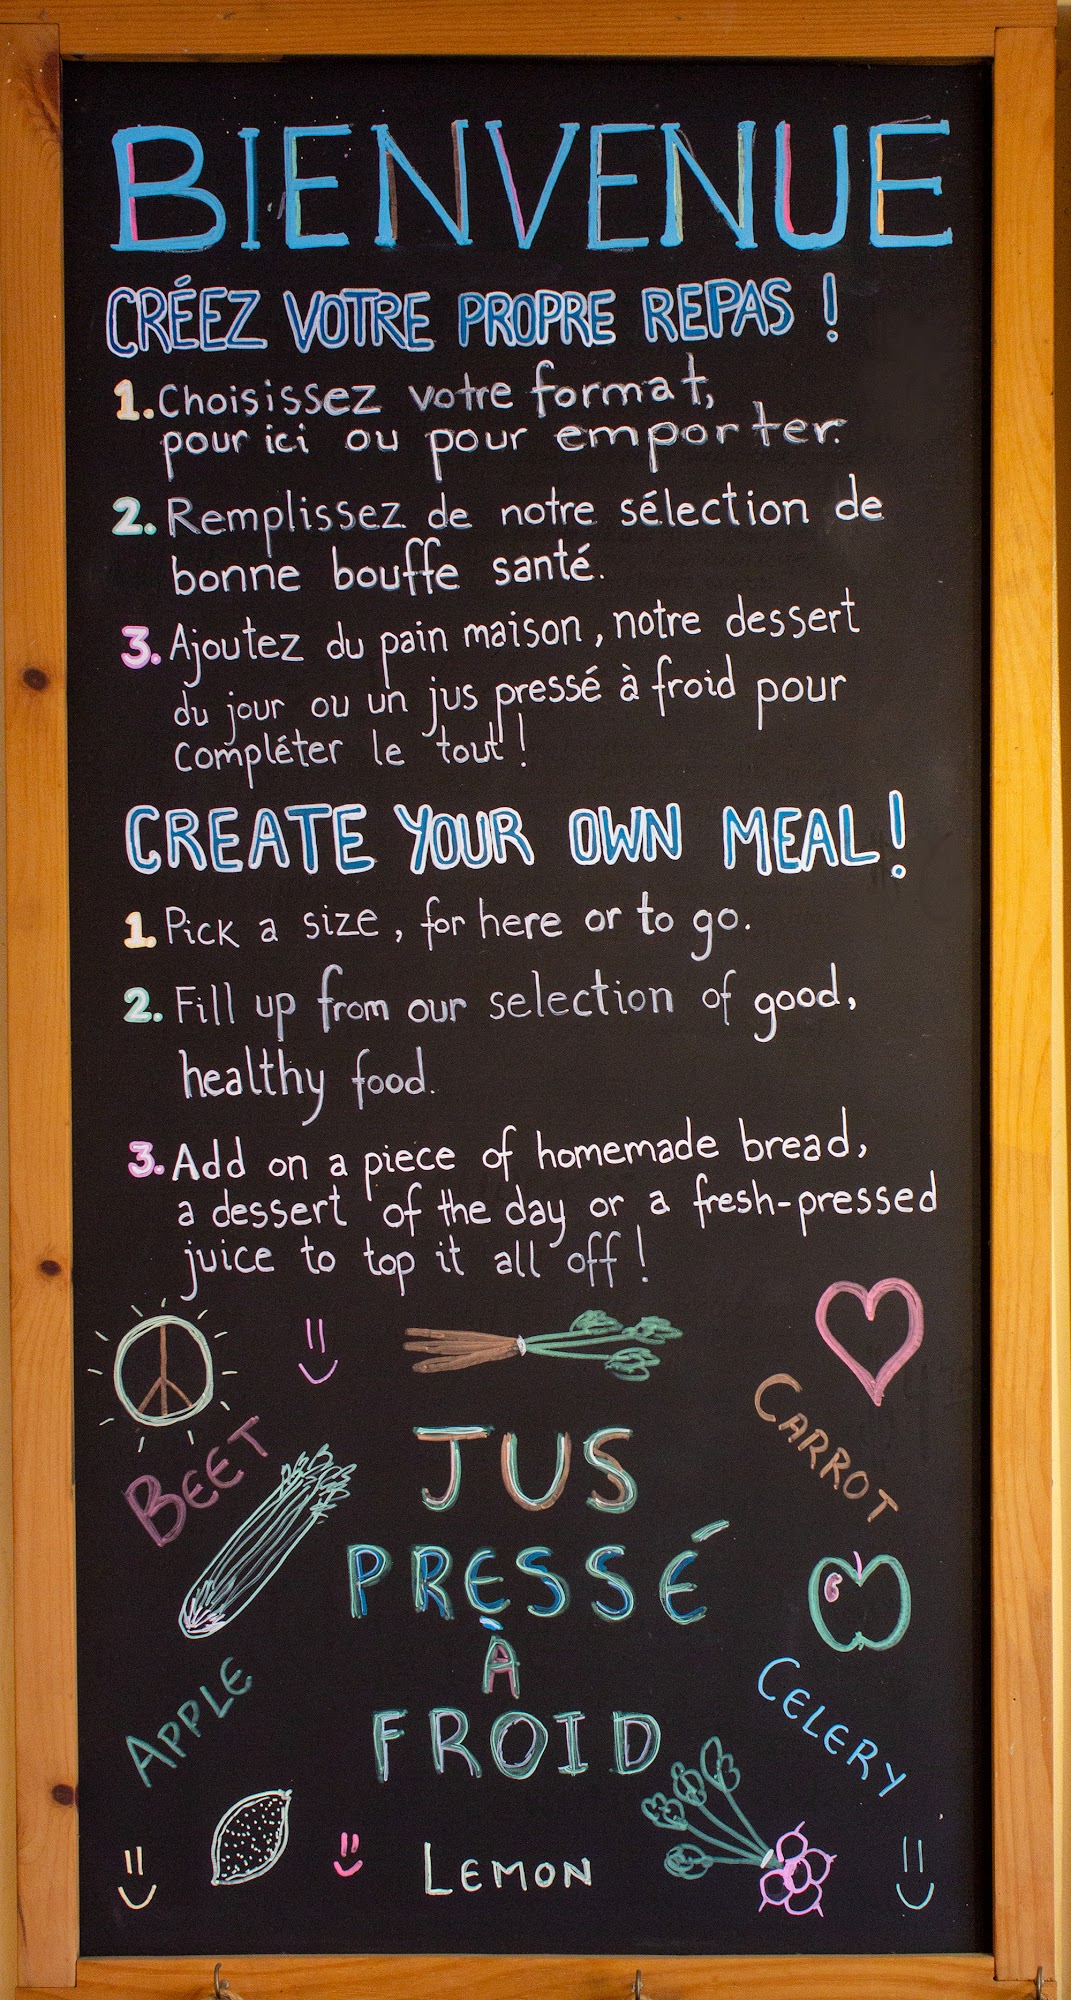 BIENVENUE
CRÉEZ VOTRE PROPRE REPAS !
1. Choisissez votre format,
pour ici ou pour emporter.
2. Remplissez de notre sélection de
bonne bouffe santé.
3. Ajoutez du pain maison, notre dessert
du jour ou un jus pressé à froid pour
compléter le tout !
CREATE YOUR OWN MEAL!
1. Pick a size, for here or to go.
2. Fill up from our selection of good,
healthy food.
3. Add on a piece of homemade bread,
a dessert of the day or a fresh-pressed
juice to top it all off !
BEET
CARROT
JUS
PRESSÉ
À
FROID
APPLE
CELERY
LEMON